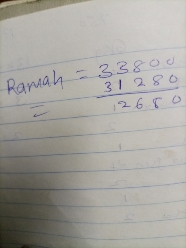 Ramah = 33800
= 31280
12680